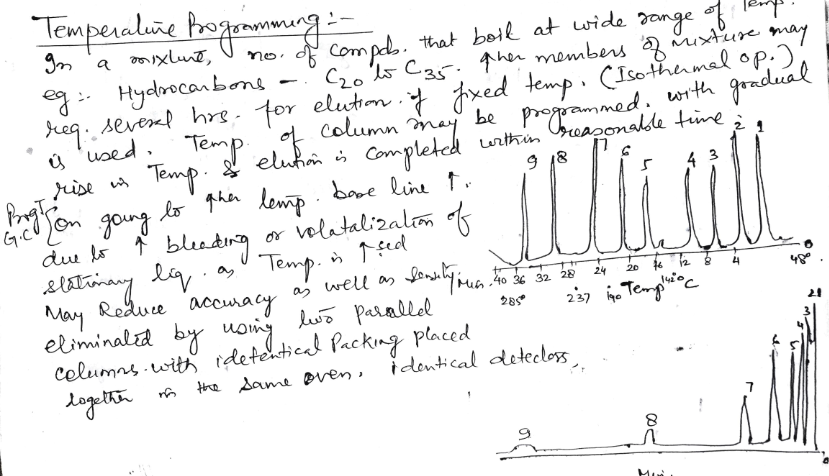 Temperature Programming :-
In a mixture, no. of compds. that boil at wide range of Temp.
eg :- Hydrocarbons - C20 to C35. ↑her members of mixture may
req. several hrs. for elution if fixed temp. (Isothermal op.)
is used. Temp. of column may be programmed. with gradual
rise in Temp. & elution is completed within reasonable time.
Prog T G.C { on going to ↑her temp. base line ↑.
due to ↑ bleeding or volatalization of
stationary liq. as Temp. is ↑sed
May Reduce accuracy as well as Sensity.
eliminated by using two parallel
columns with idetentical Packing placed
together in the same oven, identical detectors,
9 8 7 6 5 4 3 2 1
Min. 40 36 32 28 24 20 16 12 8 4 0
285° 237 190 Temp 142°C 48°
9 8 7 6 5 4 3 21
Min. 0